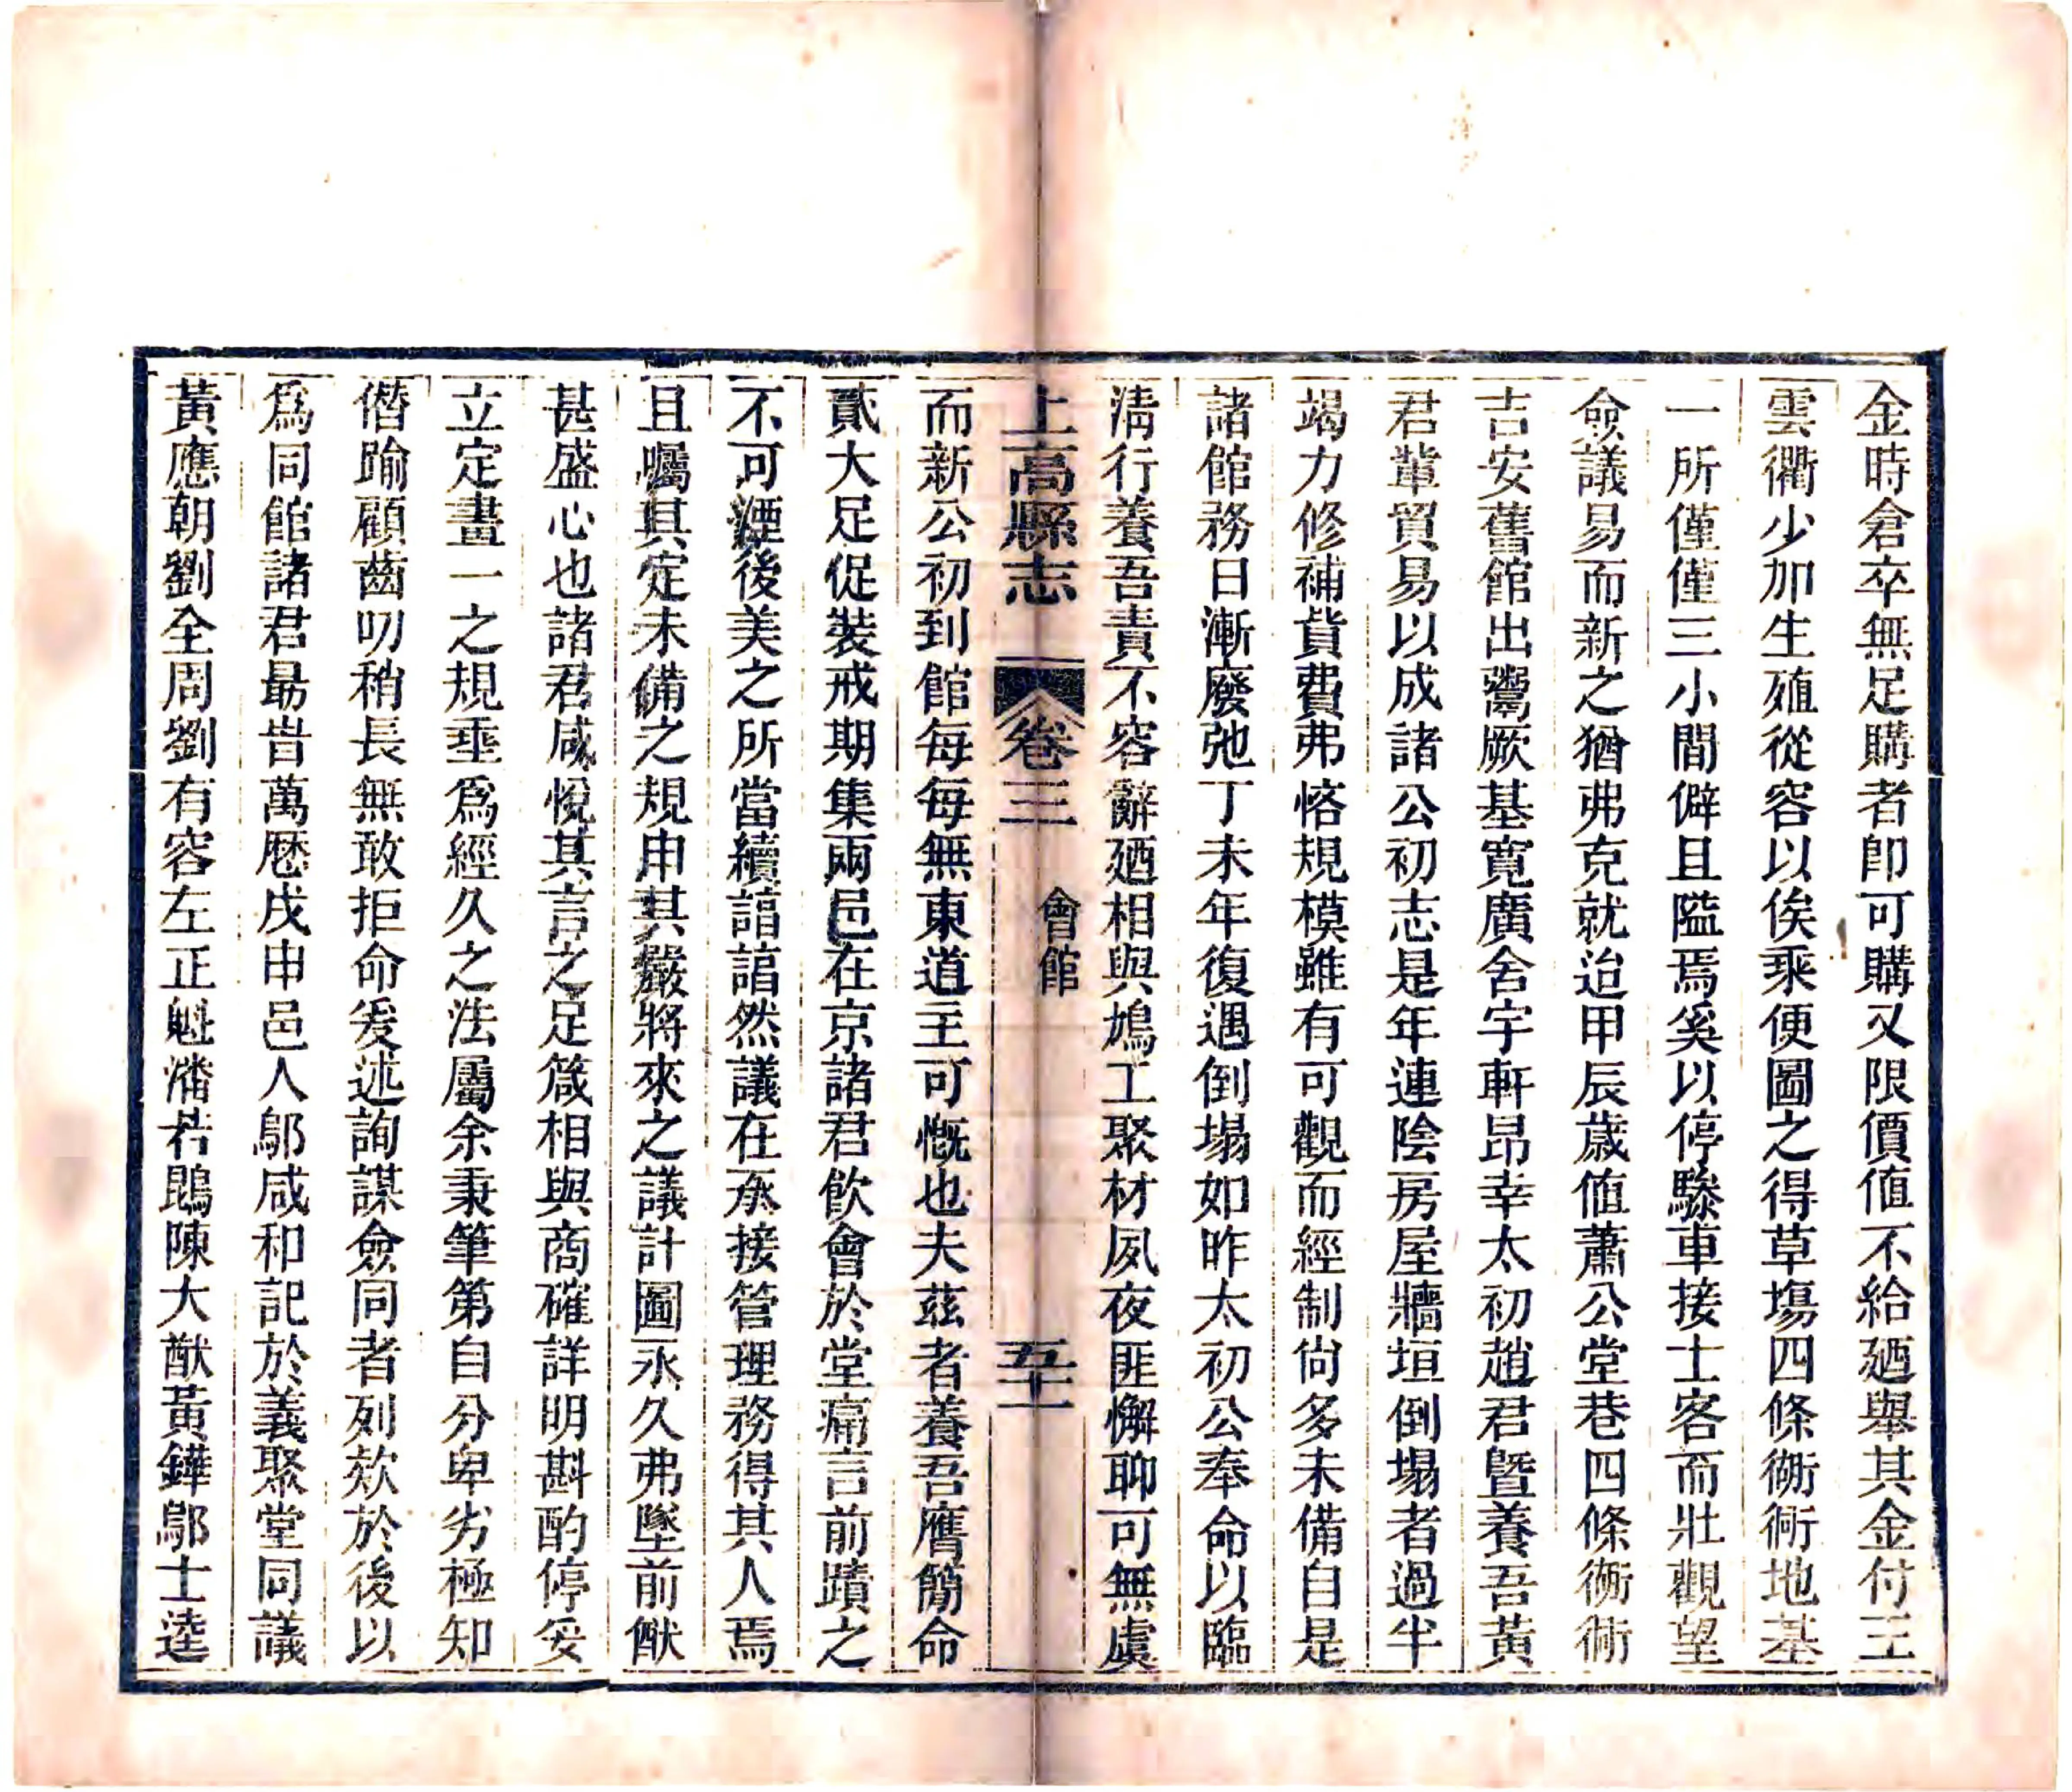 金時倉卒無足購者卽可購又限價値不給廼舉其金付王
雲衢少加生殖從容以俟乘便圖之得草塲四條衚衕地基
一所僅僅三小間僻且隘焉奚以停驂車接士客而壯觀望
僉議易而新之猶弗克就迨甲辰歲値蕭公堂巷四條衚衕
吉安舊館出鬻厥基寬廣舍宇軒昂幸太初趙君曁養吾黃
君輩貿易以成諸公初志是年連陰房屋牆垣倒塌者過半
竭力修補貲費弗恡規模雖有可觀而經制尙多未備自是
諸館務日漸廢弛丁未年復遇倒塌如昨太初公奉命以臨
淸行養吾責不容辭廼相與鳩工聚材夙夜匪懈聊可無虞
上高縣志
卷三
會館
五十一
而新公初到館每每無東道主可慨也夫茲者養吾膺簡命
貳大足促裝戒期集兩邑在京諸君飮會於堂痛言前蹟之
不可湮後美之所當續諳諳然議在承接管理務得其人焉
且囑其定未備之規申其嚴將來之議計圖永久弗墜前猷
甚盛心也諸君咸悅其言之足箴相與商確詳明斟酌停妥
立定畫一之規垂爲經久之法屬余秉筆第自分卑劣極知
僭踰顧齒叨稍長無敢拒命爰述詢謀僉同者列欵於後以
爲同館諸君朂旹萬厯戊申邑人鄔咸和記於義聚堂同議
黃應朝劉全周劉有容左正魁潘若鵾陳大猷黃鏵鄔士逵